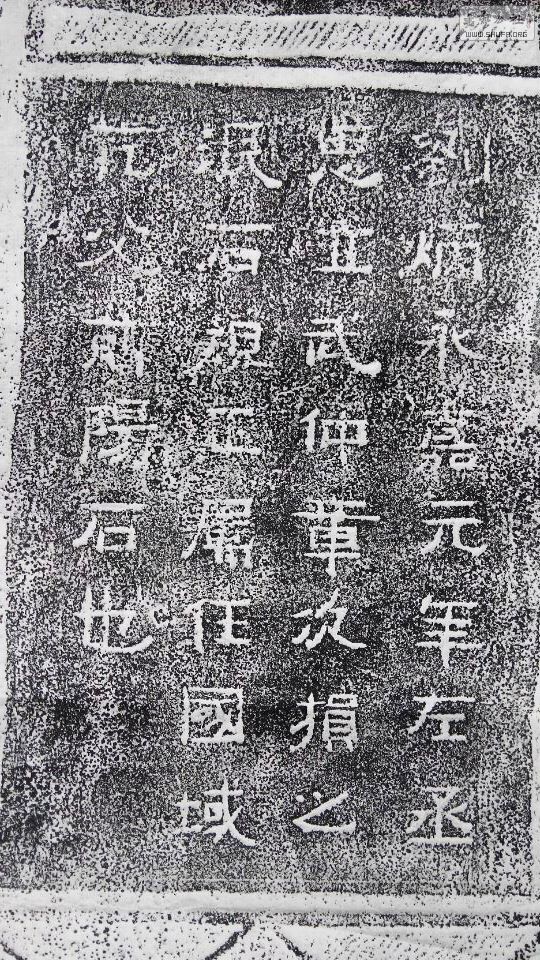 劉熵永嘉元年左丞
忠直武仲章次損之
泯石祖正屬任國域
亢父前陽石也
WWW.SHUFA.ORG